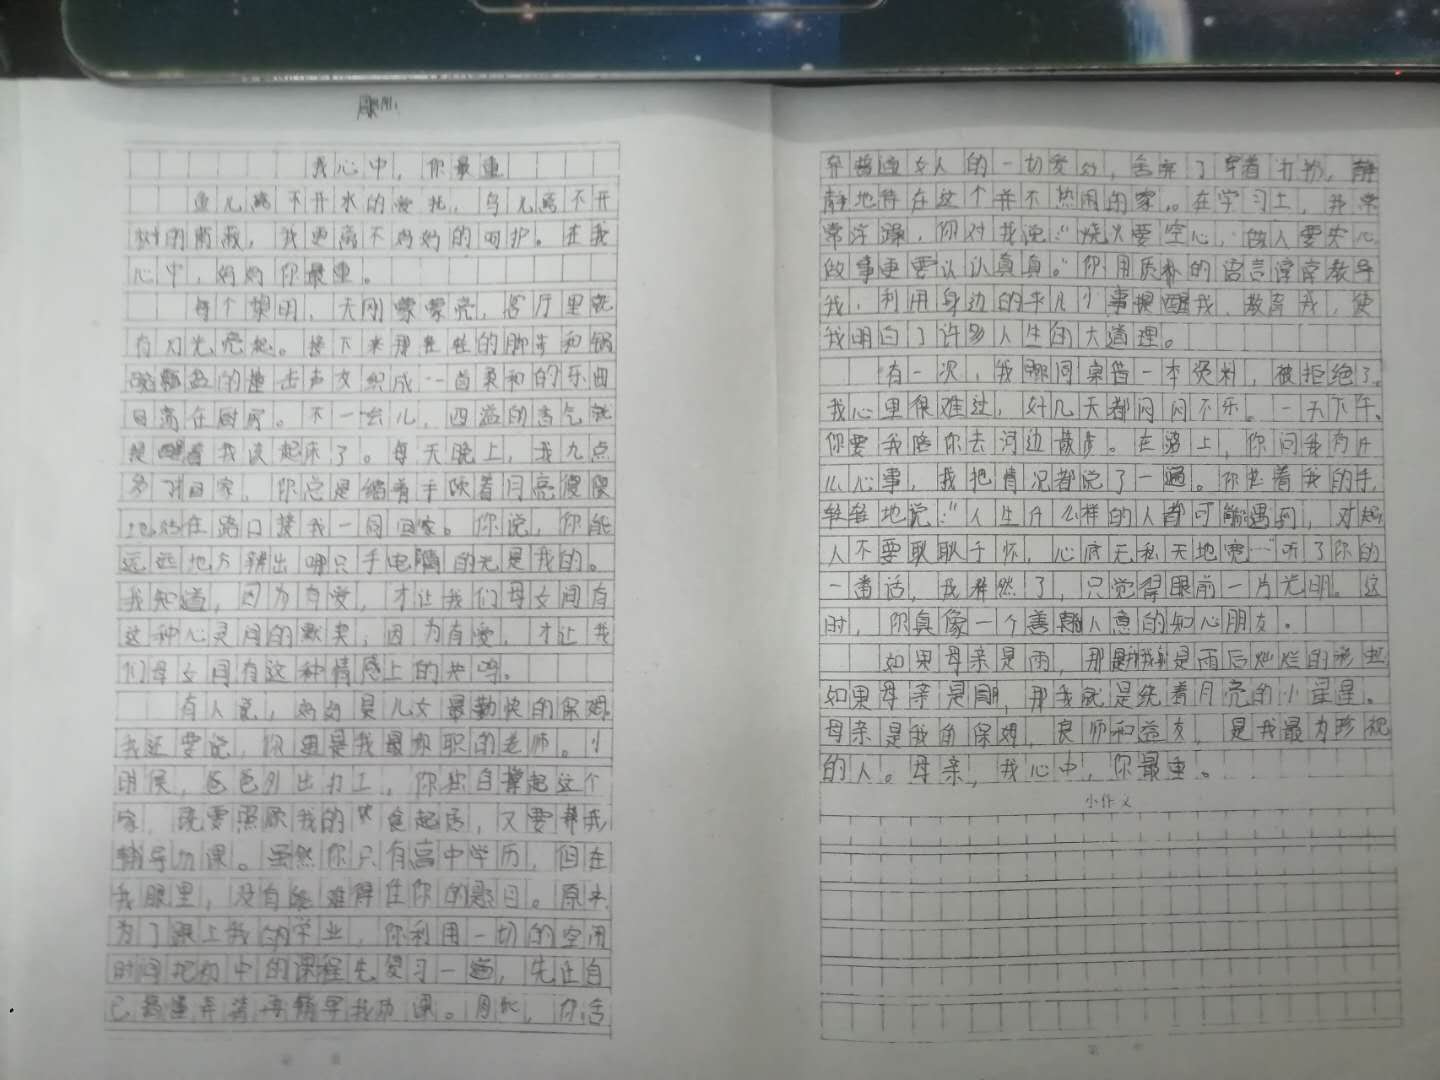 我心中，你最重
鱼儿离不开水的怀抱，鸟儿离不开
树的荫蔽，我更离不妈妈的呵护。在我
心中，妈妈你最重。
每个黎明，天刚蒙蒙亮，客厅里就
有灯光亮起。接下来那些轻的脚步和锅
碗瓢盆的撞击声交织成一首柔和的乐曲
回荡在厨房。不一会儿，四溢的香气就
提醒着我该起床了。每天晚上，我九点
多才回家，你总是缩着手映着月亮傻傻
地站在路口接我一同回家。你说，你能
远远地方辨出哪只手电筒的光是我的。
我知道，因为有爱，才让我们母女间有
这种心灵间的默契；因为有爱，才让我
们母女间有这种情感上的共鸣。
有人说，妈妈是儿女最勤快的保姆。
我还要说，你更是我最称职的老师。小
时侯，爸爸外出打工，你独自撑起这个
家，既要照顾我的饮食起居，又要帮我
辅导功课。虽然你只有高中学历，但在
我眼里，没有能难得住你的题目。原来
为了跟上我的学业，你利用一切的空闲
时间把初中的课程先复习一遍，先让自
己搞懂弄清再辅导我功课。因此，你舍
弃普通女人的一切爱好，舍弃了穿着打扮，静
静地待在这个并不热闹的家。在学习上，我常
常浮躁，你对我说：“烧火要空心，做人要实心，
做事更要认认真真。”你用质朴的语言常常教导
我，利用身边的半儿小事提醒我、教育我，使
我明白了许多人生的大道理。
有一次，我向同桌借一本资料，被拒绝了。
我心里很难过，好几天都闷闷不乐。一天下午，
你要我陪你去河边散步。在路上，你问我有什
么心事，我把情况都说了一遍。你拉着我的手，
轻轻地说：“人生什么样的人都可能遇到，对起
人不要耿耿于怀，心底无私天地宽…”听了你的
一番话，我释然了，只觉得眼前一片光明。这
时，你真像一个善解人意的知心朋友。
如果母亲是雨，那我就是雨后灿烂的彩虹
如果母亲是月，那我就是绕着月亮的小星星。
母亲是我的保姆，良师和益友，是我最为珍视
的人。母亲，我心中，你最重。
小作文